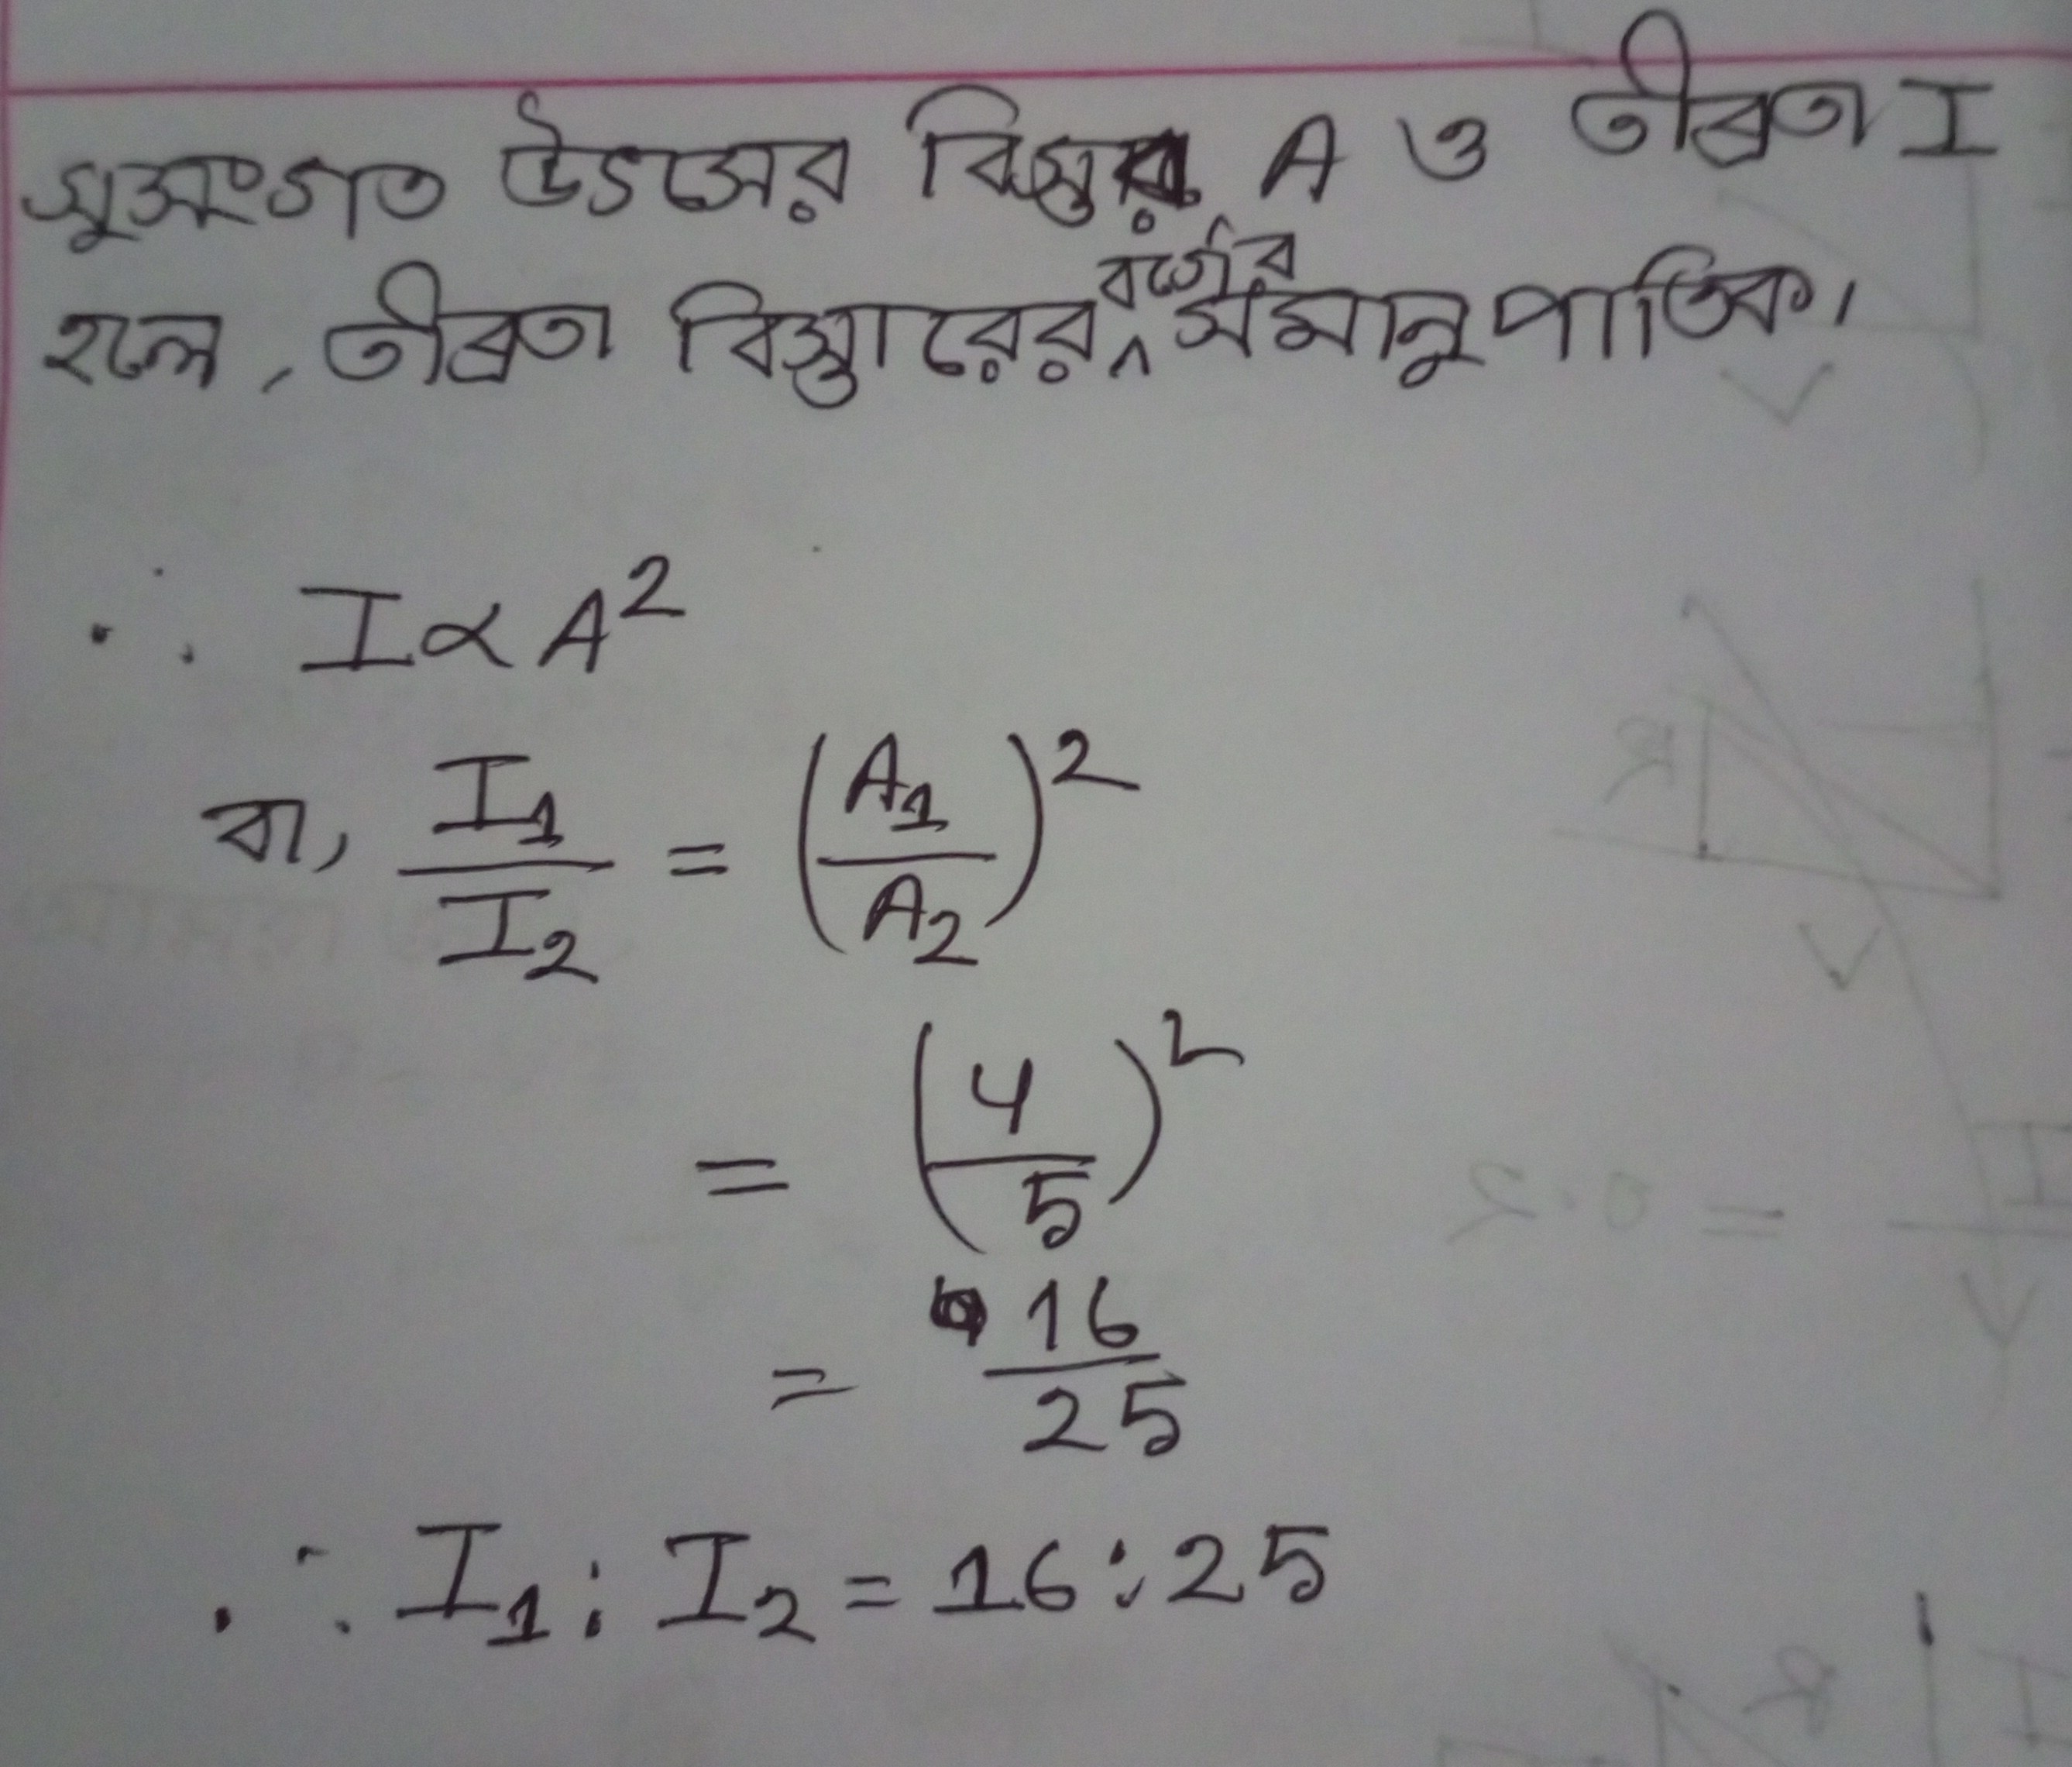 সুসংগত উৎসের বিস্তার A ও তীব্রতা I
হলে, তীব্রতা বিস্তারের বর্গের সমানুপাতিক।
∴ I ∝ A²
বা, I₁/I₂ = (A₁/A₂)²
= (4/5)²
= 16/25
∴ I₁ : I₂ = 16 : 25